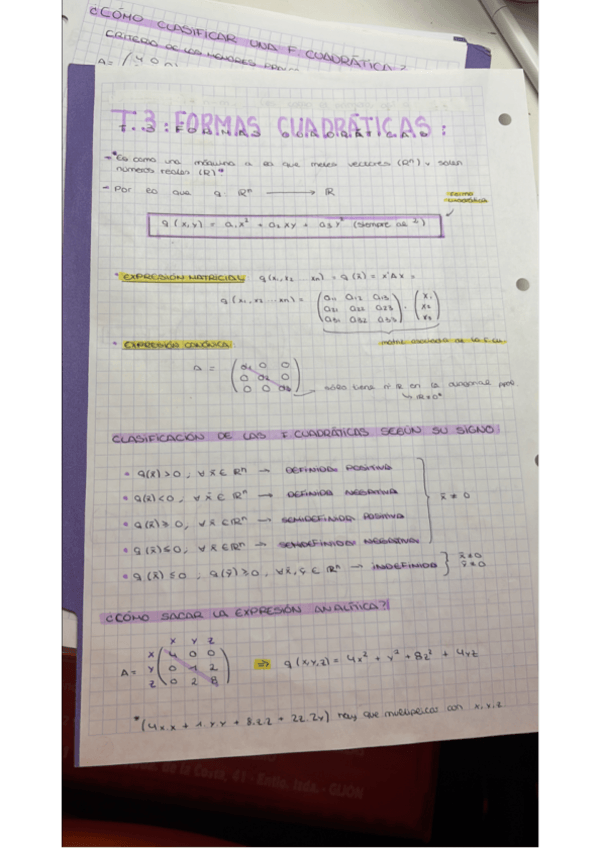 ¿CÓMO CLASIFICAR UNA F. CUADRÁTICA?
CRITERIO DE LOS MENORES
A= ( 4 0 0
T.3: FORMAS CUADRÁTICAS:
- Es como una máquina a la que metes vectores (Rⁿ) y salen
números reales (R)
- Por lo que q: Rⁿ → R
forma cuadrática
q(x,y) = a₁x² + a₂xy + a₃y² (siempre al ²)
• EXPRESIÓN MATRICIAL q(x₁,x₂ xn) = q(x̄) = x'Ax =
q(x₁,x₂ xn) = ( a₁₁ a₁₂ a₁₃ ) · ( x₁ )
( a₂₁ a₂₂ a₂₃ ) ( x₂ )
( a₃₁ a₃₂ a₃₃ ) ( x₃ )
matriz asociada de la F.CU.
• EXPRESIÓN CANÓNICA
a = ( d₁ 0 0 )
( 0 d₂ 0 )
( 0 0 d₃ )
sólo tiene nº R en la diagonal ppal
CLASIFICACIÓN DE LAS F. CUADRÁTICAS SEGÚN SU SIGNO
• q(x̄)>0, ∀ x̄ ∈ Rⁿ → DEFINIDA POSITIVA
• q(x̄)<0, ∀ x̄ ∈ Rⁿ → DEFINIDA NEGATIVA
x̄ ≠ 0
• q(x̄)≥0, ∀ x̄ ∈ Rⁿ → SEMIDEFINIDA POSITIVA
• q(x̄)≤0, ∀ x̄ ∈ Rⁿ → SEMIDEFINIDA NEGATIVA
• q(x̄)≤0, q(ȳ)≥0, ∀ x̄, ȳ ∈ Rⁿ → INDEFINIDA } x̄≠0
ȳ≠0
¿CÓMO SACAR LA EXPRESIÓN ANALÍTICA?
X Y Z
X ( 4 0 0 )
A = Y ( 0 1 2 ) ⇒ q(x,y,z) = 4x² + y² + 8z² + 4yz
Z ( 0 2 8 )
*(4x.x + 1.y.y + 8.z.z + 2z.2y) hay que multiplicar con x,y,z
de la Costa, 41 - Entlo. Izda. - GIJÓN